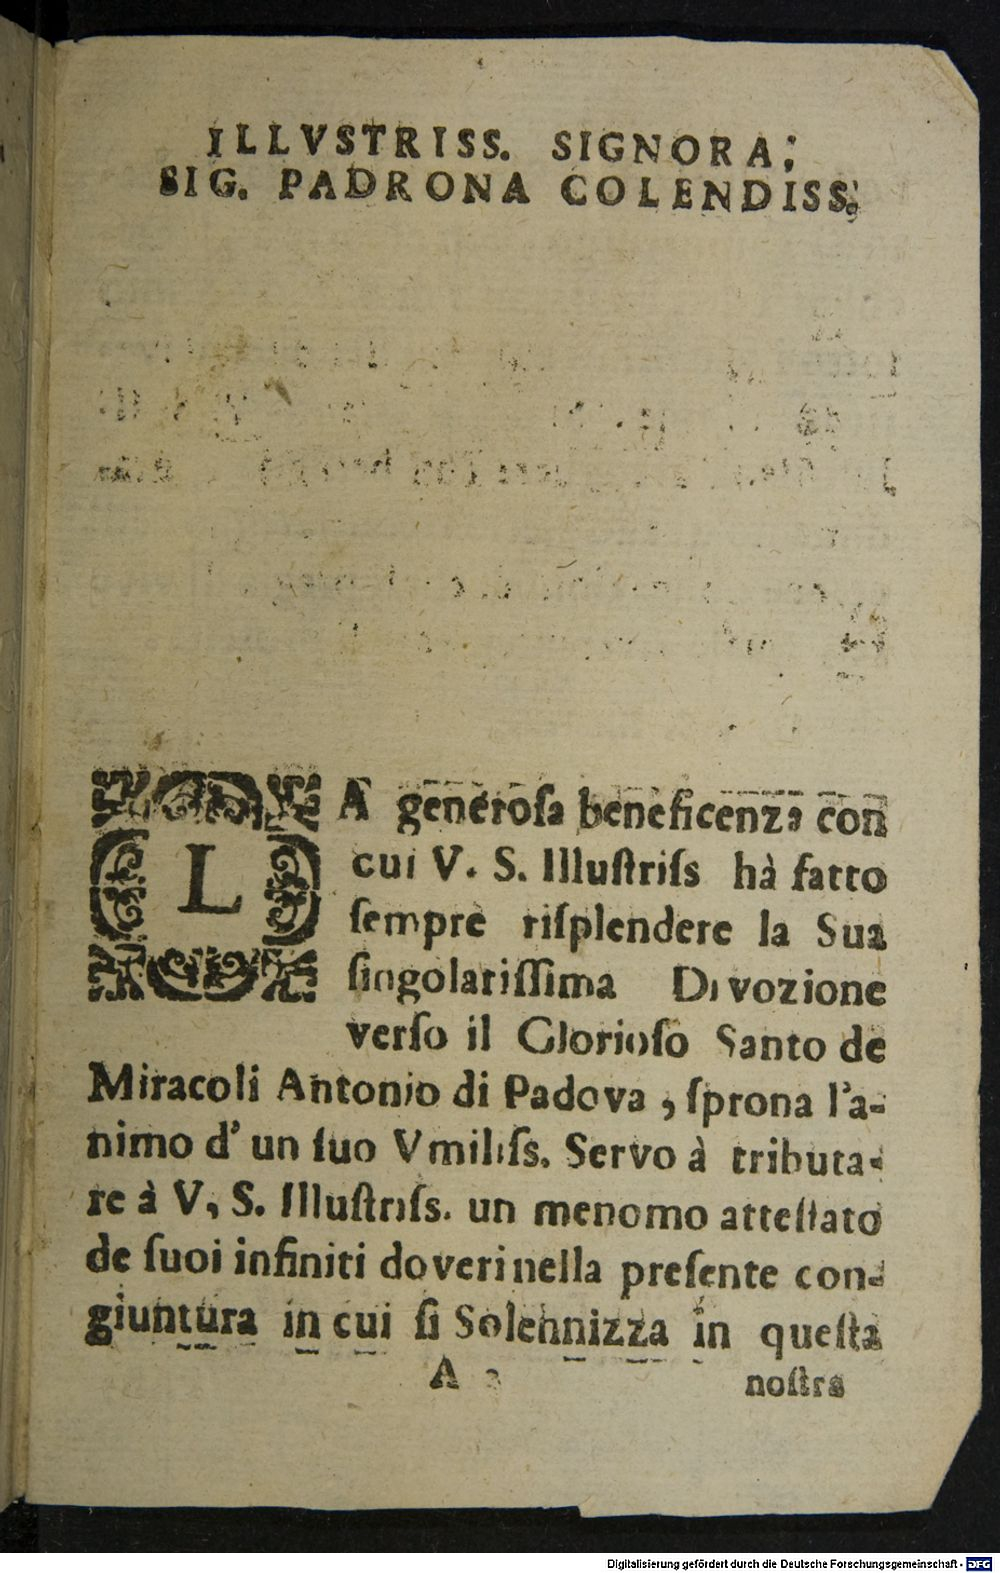 ILLVSTRISS. SIGNORA;
SIG. PADRONA COLENDISS.
LA generoſa beneficenza con
cui V. S. Illuſtriſs hà fatto
ſempre riſplendere la Sua
ſingolariſſima Divozione
verſo il Glorioſo Santo de
Miracoli Antonio di Padova, ſprona l'a-
nimo d' un ſuo Vmiliſs. Servo à tributa-
re à V, S. Illuſtriſs. un menomo atteſtato
de ſuoi infiniti doveri nella preſente con-
giuntura in cui ſi Solennizza in queſta
A
noſtra
Digitalisierung gefördert durch die Deutsche Forschungsgemeinschaft - DFG